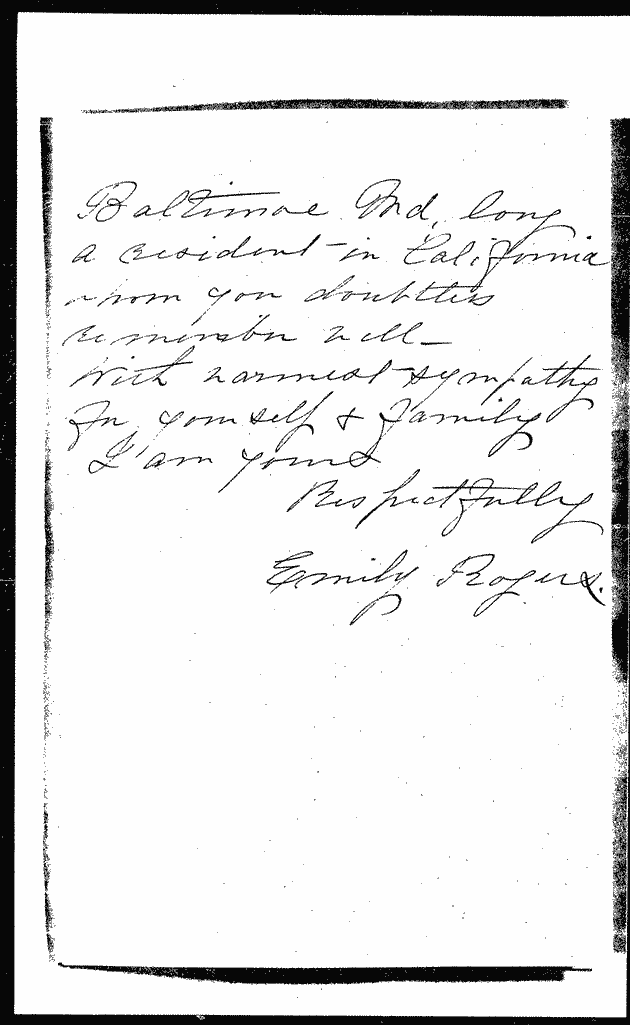 Baltimore Md, long
a resident in California
whom you doubtless
remember well—
With warmest sympathy
for yourself & family
I am yours
Respectfully
Emily Rogers.